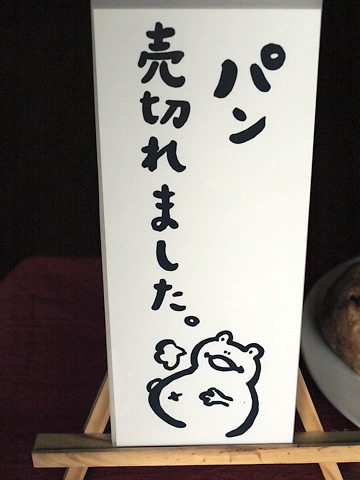 パン
売切れました。